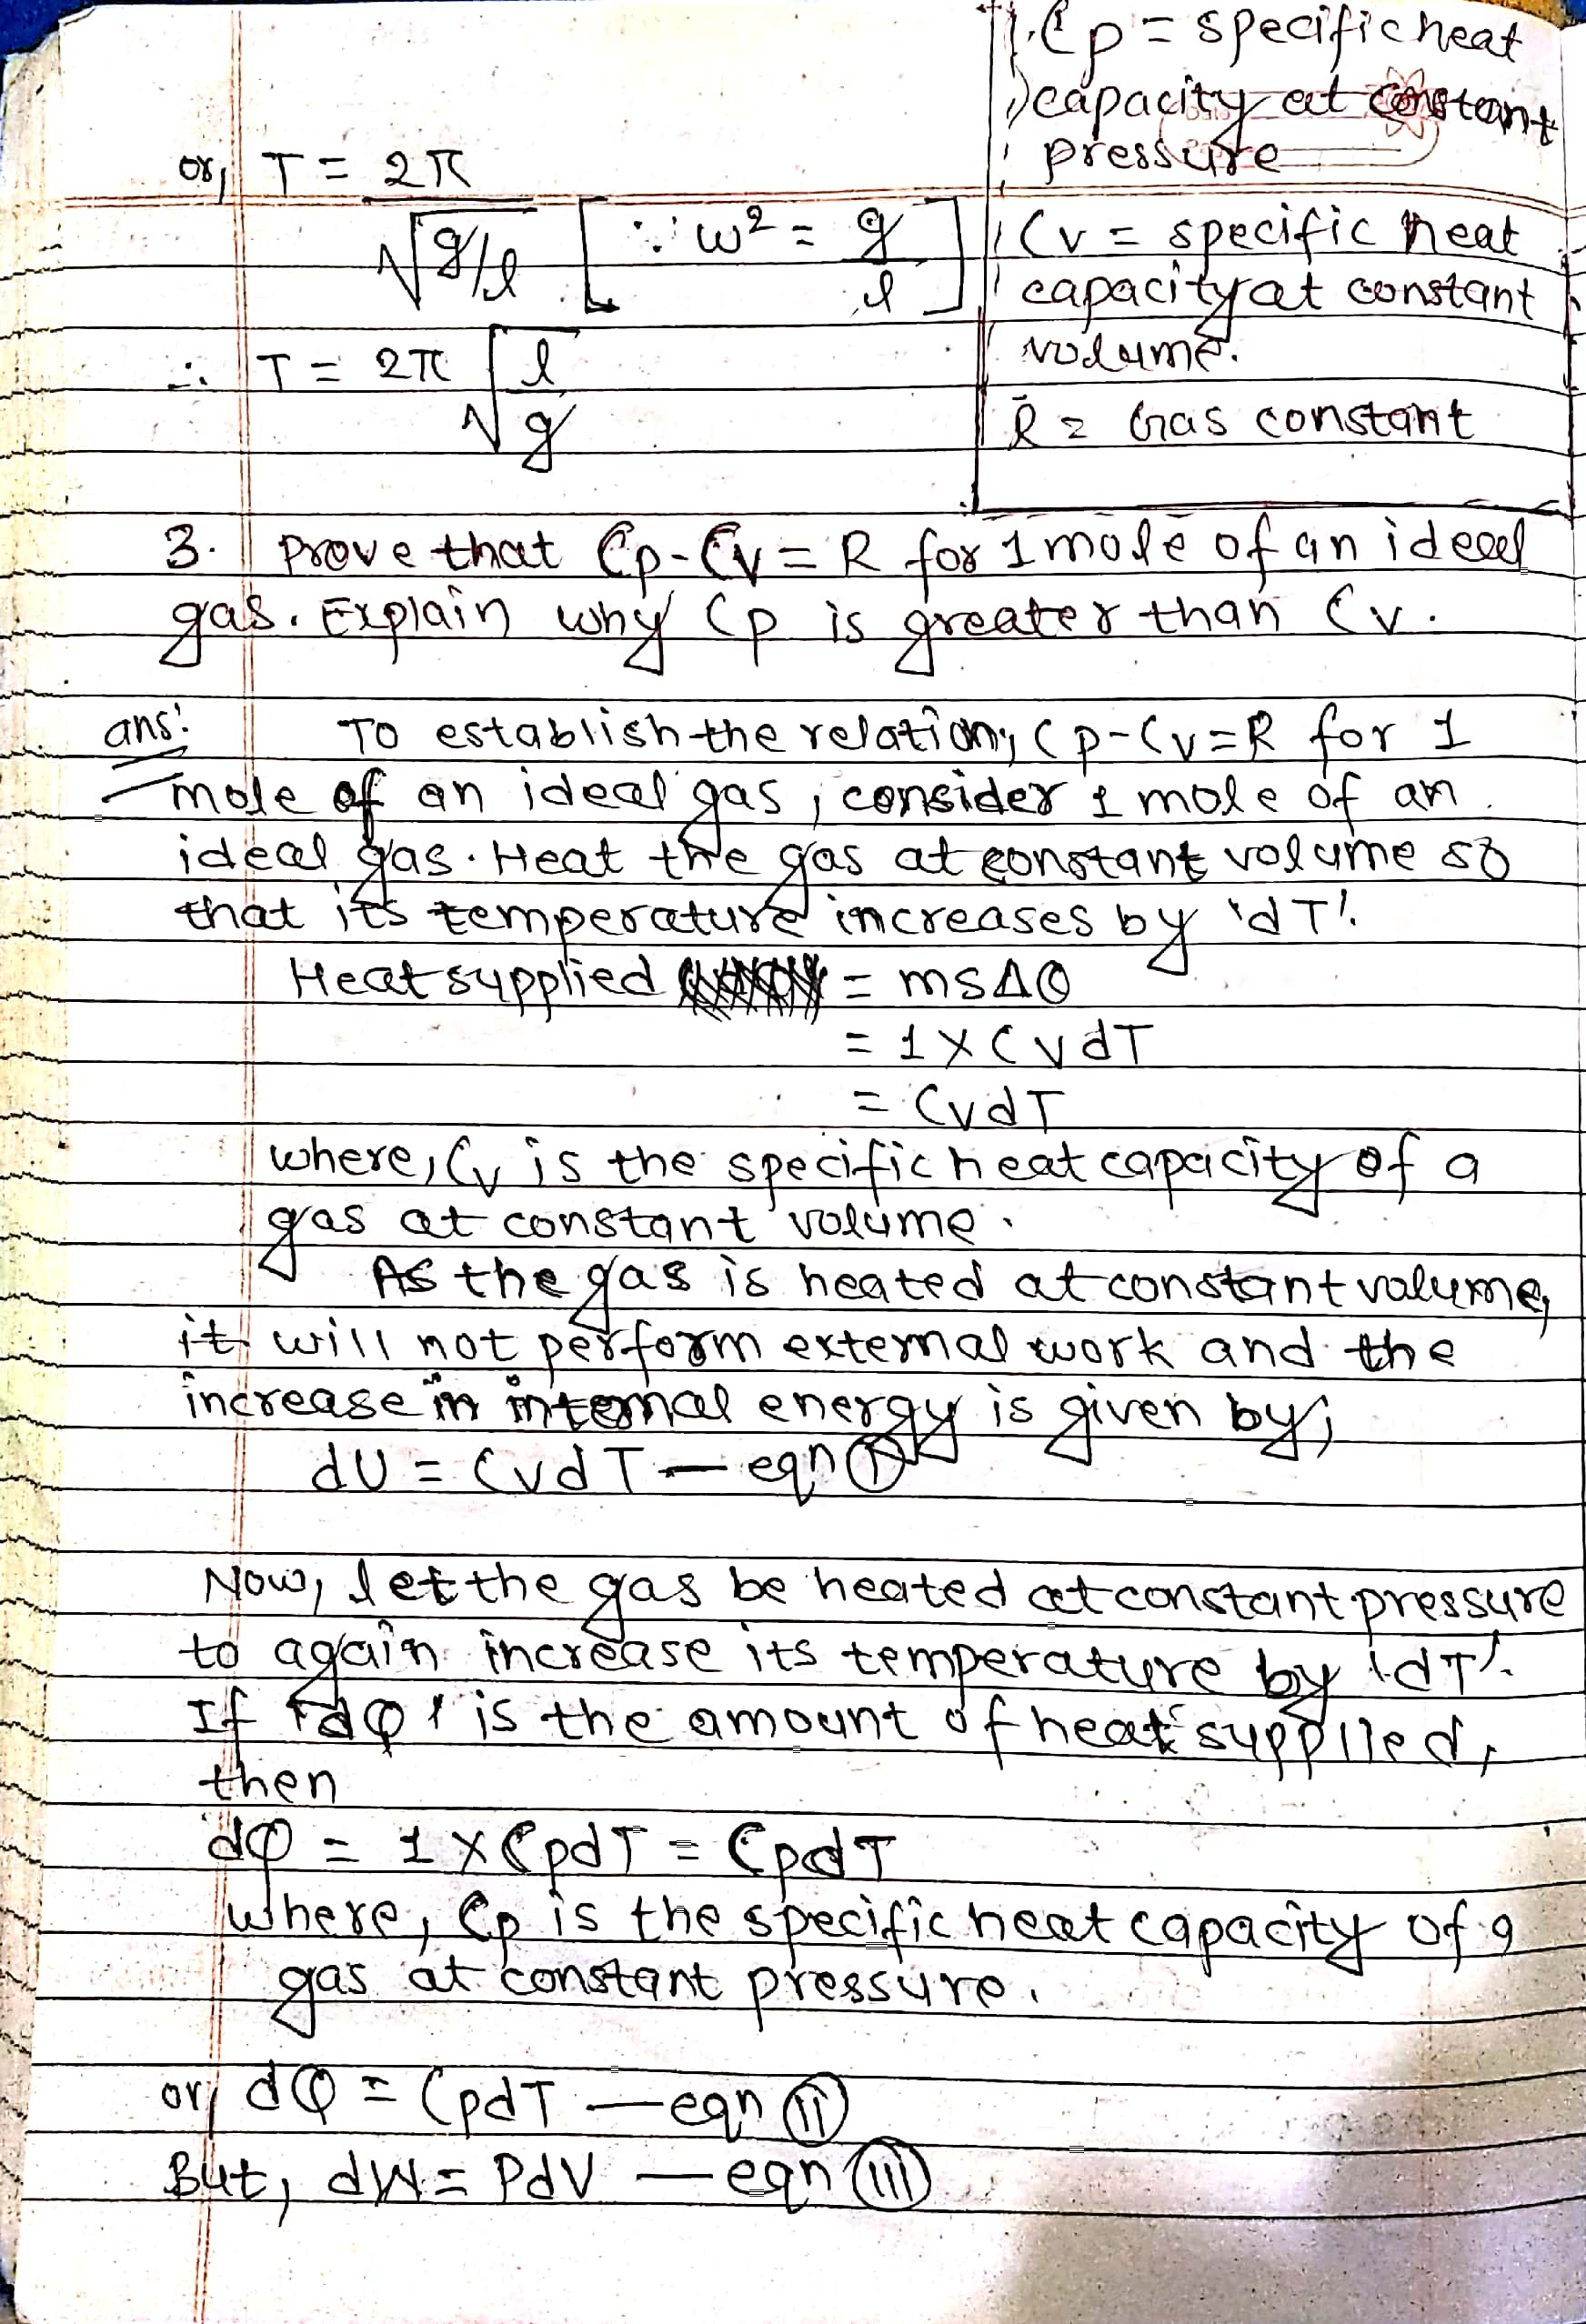 Cp = specific heat
capacity at constant
pressure
Cv = specific heat
capacity at constant
volume.
R = Gas constant
or, T = 2π
√g/l [∵ w² = g
l]
∴ T = 2π √l
g
3. Prove that Cp-Cv = R for 1 mole of an ideal
gas. Explain why Cp is greater than Cv.
ans: To establish the relation, Cp-Cv=R for 1
mole of an ideal gas, consider 1 mole of an
ideal gas. Heat the gas at constant volume so
that its temperature increases by 'dT'.
Heat supplied = msΔθ
= 1 X CvdT
= CvdT
where, Cv is the specific heat capacity of a
gas at constant volume.
As the gas is heated at constant volume,
it will not perform external work and the
increase in internal energy is given by;
dU = CvdT — eqn (i)
Now, let the gas be heated at constant pressure
to again increase its temperature by 'dT'.
If 'dQ' is the amount of heat supplied,
then
dQ = 1 X CpdT = CpdT
where, Cp is the specific heat capacity of a
gas at constant pressure.
or, dQ = CpdT — eqn (ii)
But, dW = PdV — eqn (iii)